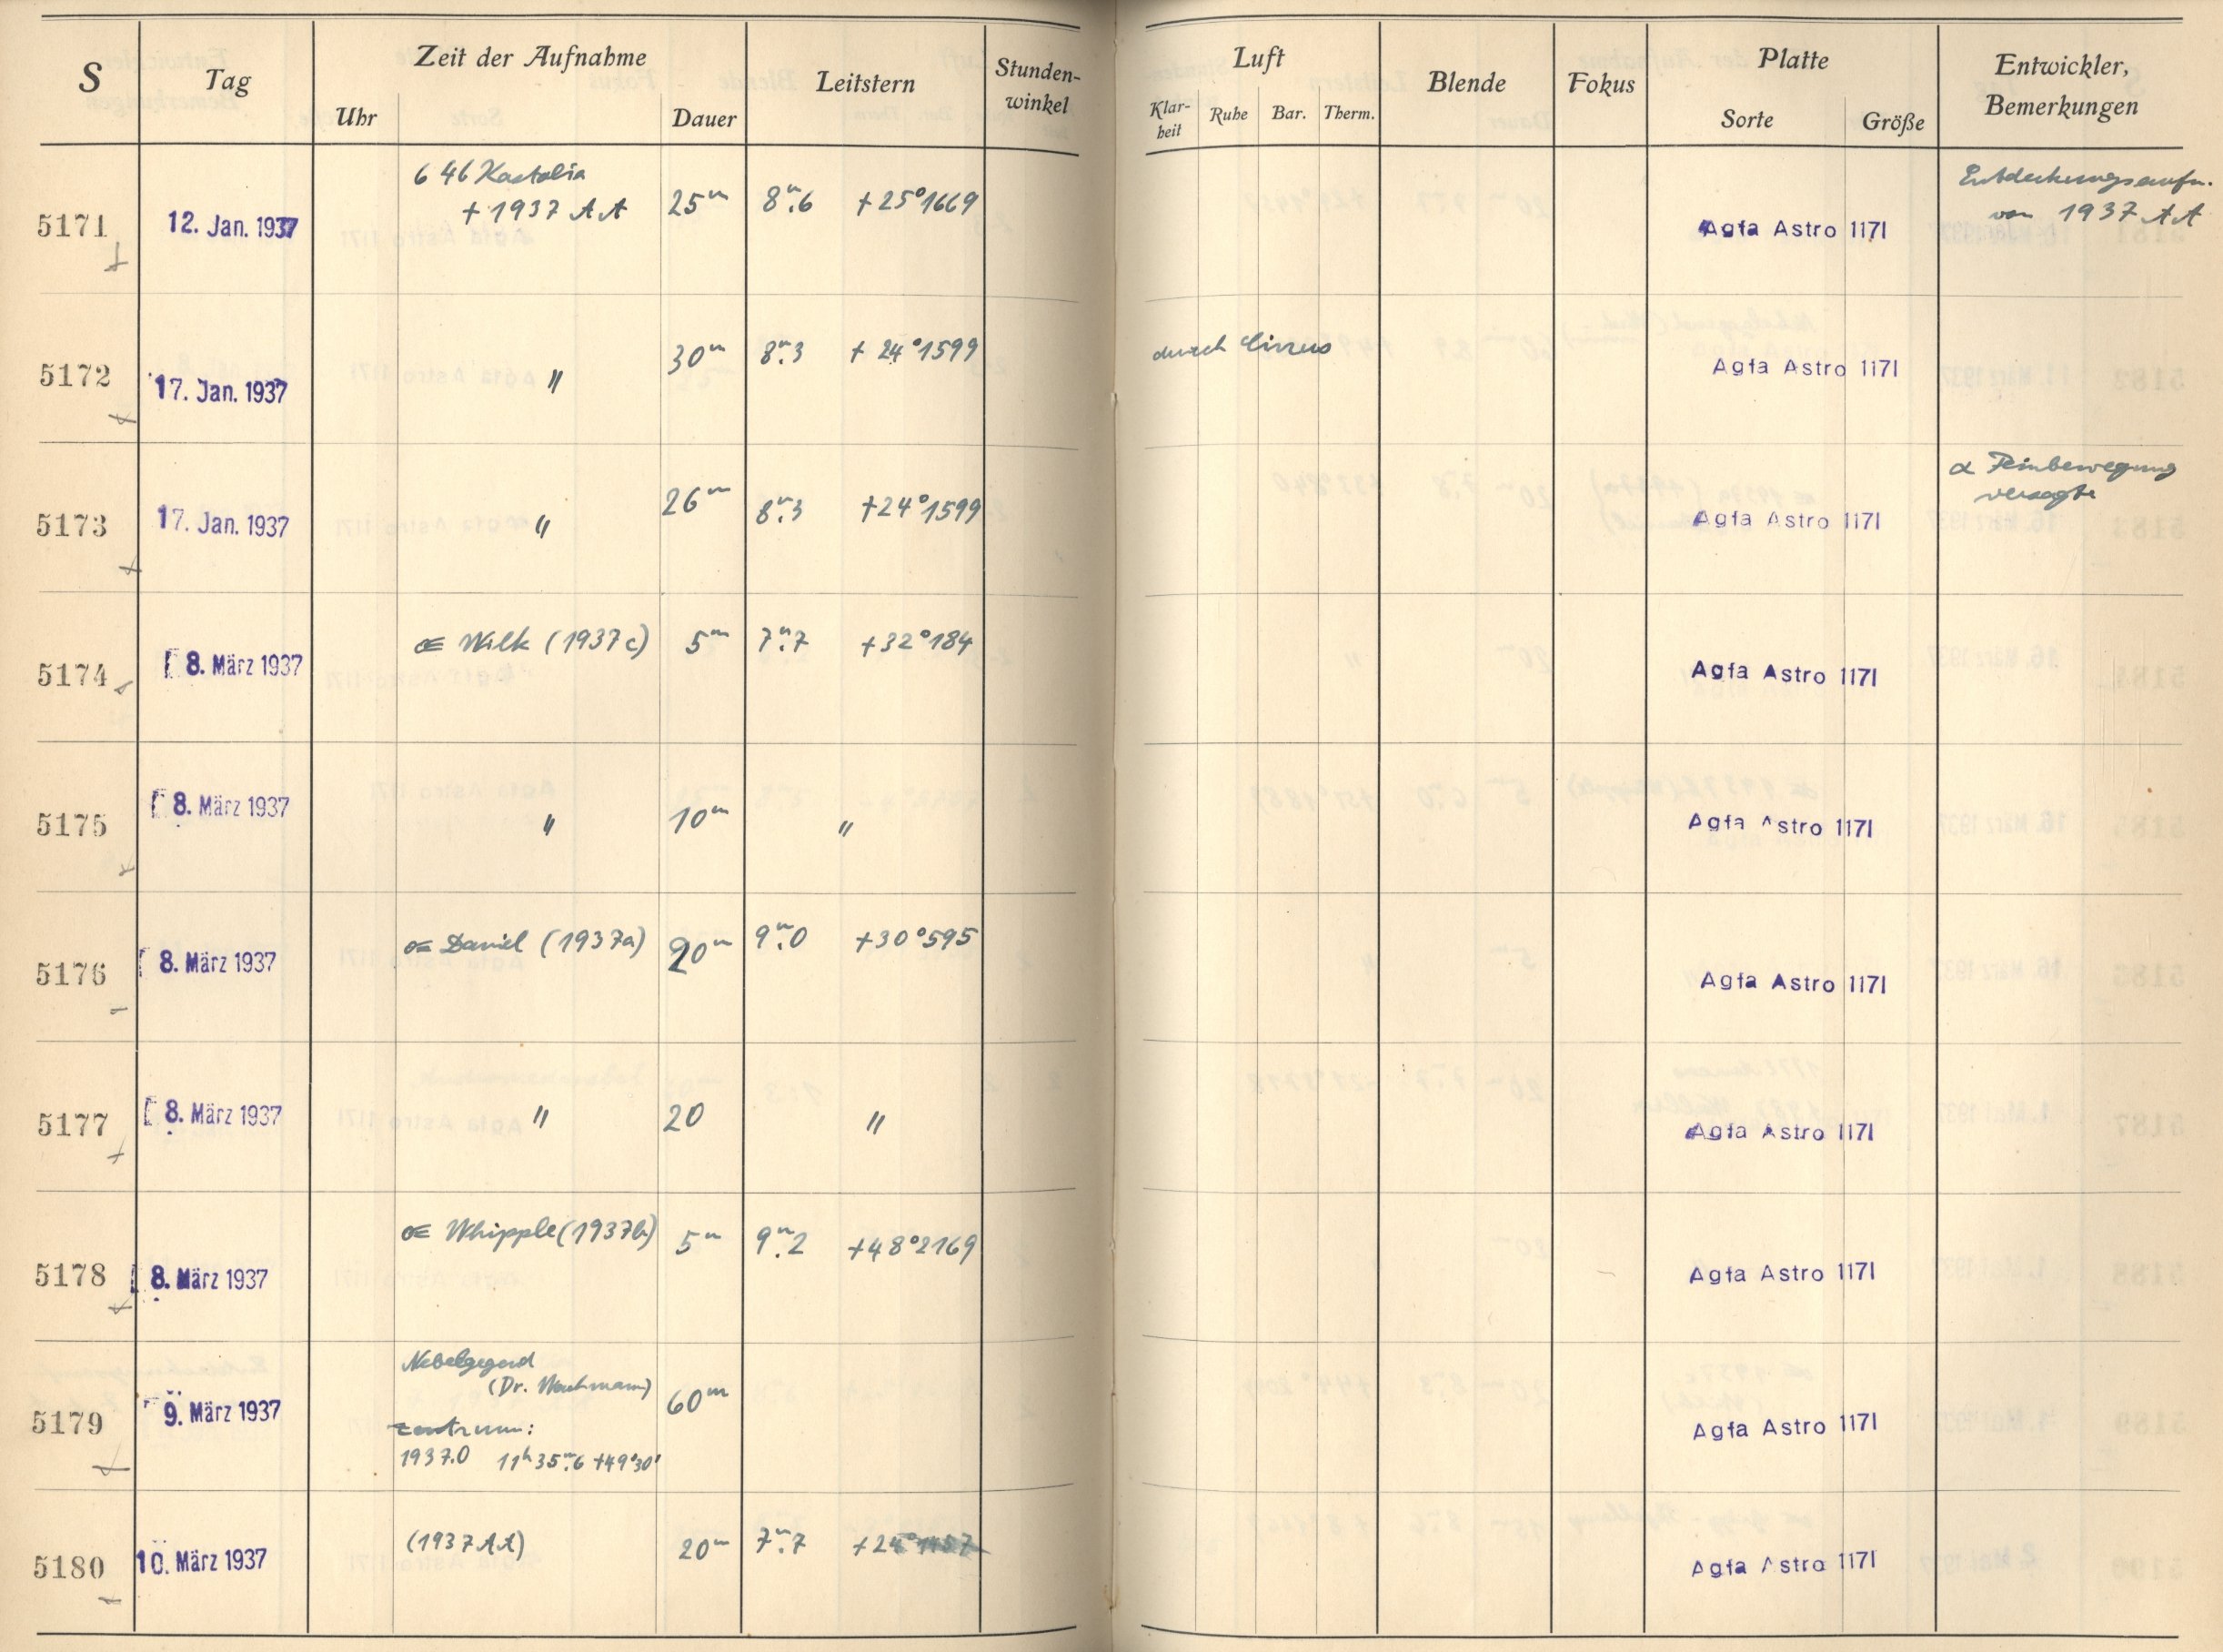 S Tag Zeit der Aufnahme Leitstern Stunden-winkel Luft Blende Fokus Platte Entwickler, Bemerkungen
Uhr Dauer Klar-heit Ruhe Bar. Therm. Sorte Größe
646 Kastalia Entdeckungsaufn.
5171 12. Jan. 1937 + 1937 AA 25m 8m.6 +25°1669 Agfa Astro 1171 von 1937 AA
5172 17. Jan. 1937 " 30m 8m.3 +24°1599 durch Cirrus Agfa Astro 1171
α Feinbewegung
5173 17. Jan. 1937 " 26m 8m.3 +24°1599 Agfa Astro 1171 versagte
5174 8. März 1937 Wilk (1937c) 5m 7m.7 +32°184 Agfa Astro 1171
5175 8. März 1937 " 10m " Agfa Astro 1171
5176 8. März 1937 Daniel (1937a) 20m 9m.0 +30°595 Agfa Astro 1171
5177 8. März 1937 " 20 " Agfa Astro 1171
5178 8. März 1937 Whipple (1937b) 5m 9m.2 +48°2169 Agfa Astro 1171
Nebelgegend
(Dr. Wachmann)
5179 9. März 1937 60m Agfa Astro 1171
Zentrum:
1937.0 11h35m.6 +49°30'
5180 10. März 1937 (1937 AA) 20m 7m.7 Agfa Astro 1171